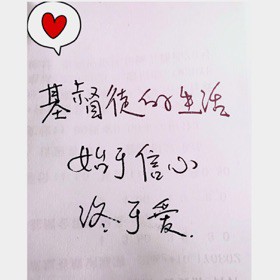 基督徒的生活
始于信心
终于爱.